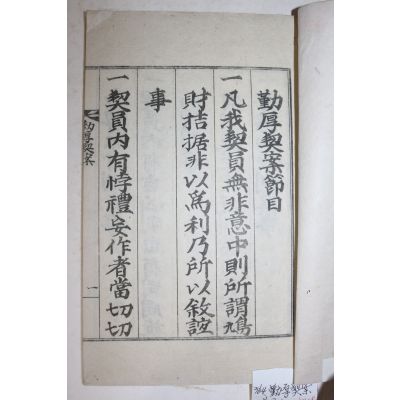 勤厚契案節目
一凡我契員無非意中則所謂鳩
財拮据非以爲利乃所以敘誼
事
一契員内有悖禮妄作者當切切
勤厚契案
一
勤厚契案